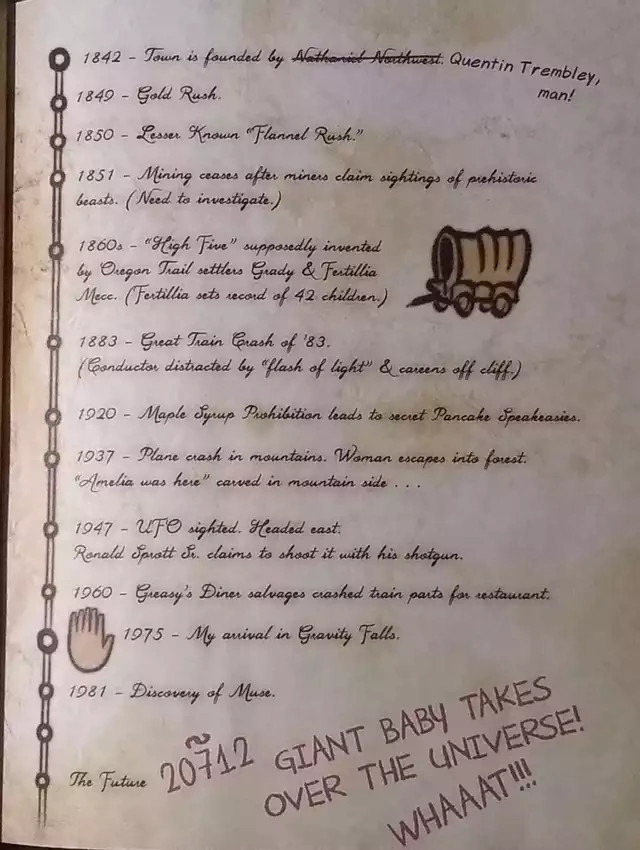 1842 - Town is founded by Nathaniel Northwest. Quentin Trembley,
man!
1849 - Gold Rush.
1850 - Lesser Known "Flannel Rush."
1851 - Mining ceases after miners claim sightings of prehistoric
beasts. (Need to investigate.)
1860s - "High Five" supposedly invented
by Oregon Trail settlers Grady & Fertillia
Mecc. (Fertillia sets record of 42 children.)
1883 - Great Train Crash of '83.
(Conductor distracted by "flash of light" & careens off cliff.)
1920 - Maple Syrup Prohibition leads to secret Pancake Speakeasies.
1937 - Plane crash in mountains. Woman escapes into forest.
"Amelia was here" carved in mountain side . . .
1947 - UFO sighted. Headed east.
Ronald Sprott Sr. claims to shoot it with his shotgun.
1960 - Greasy's Diner salvages crashed train parts for restaurant.
1975 - My arrival in Gravity Falls.
1981 - Discovery of Muse.
The Future 207̃12 GIANT BABY TAKES
OVER THE UNIVERSE!
WHAAAT!!!